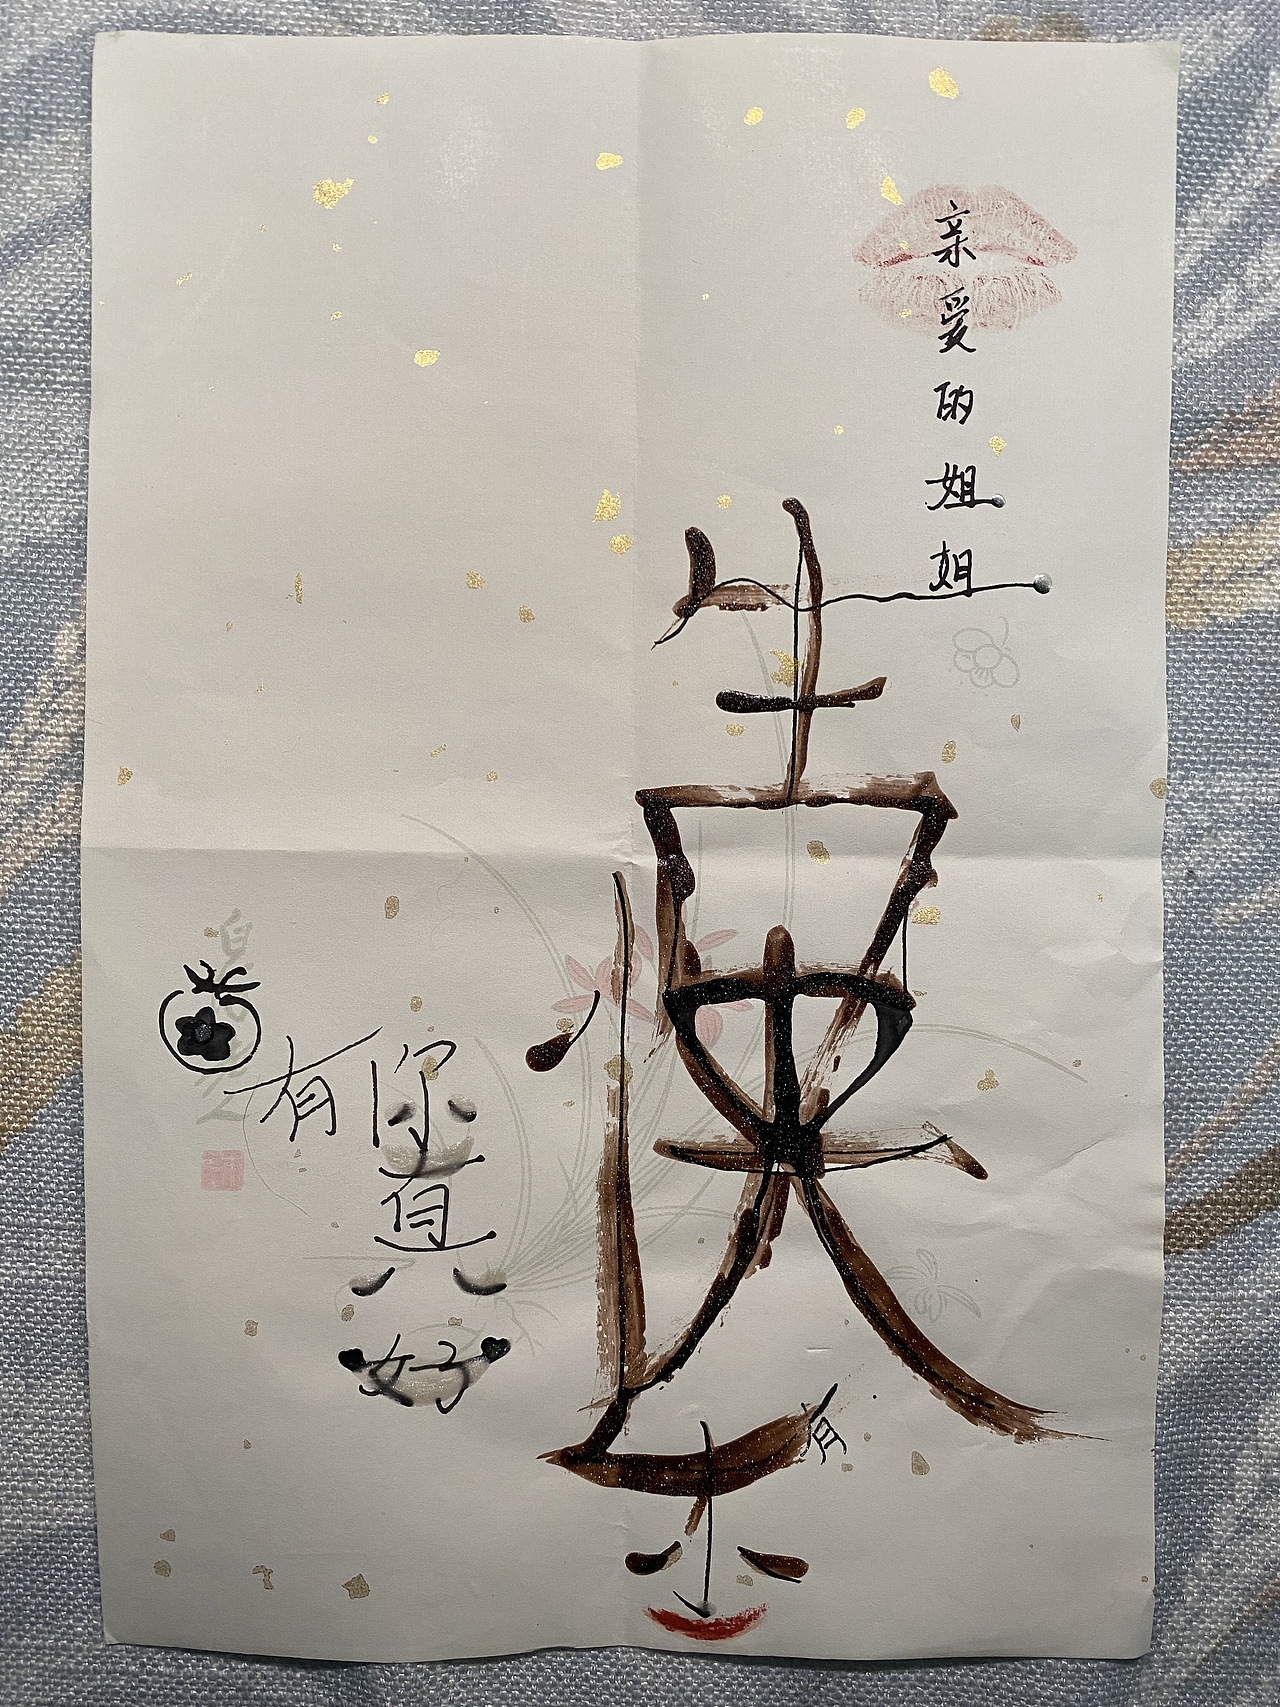 亲爱的姐姐
生日快乐
有
有你真好